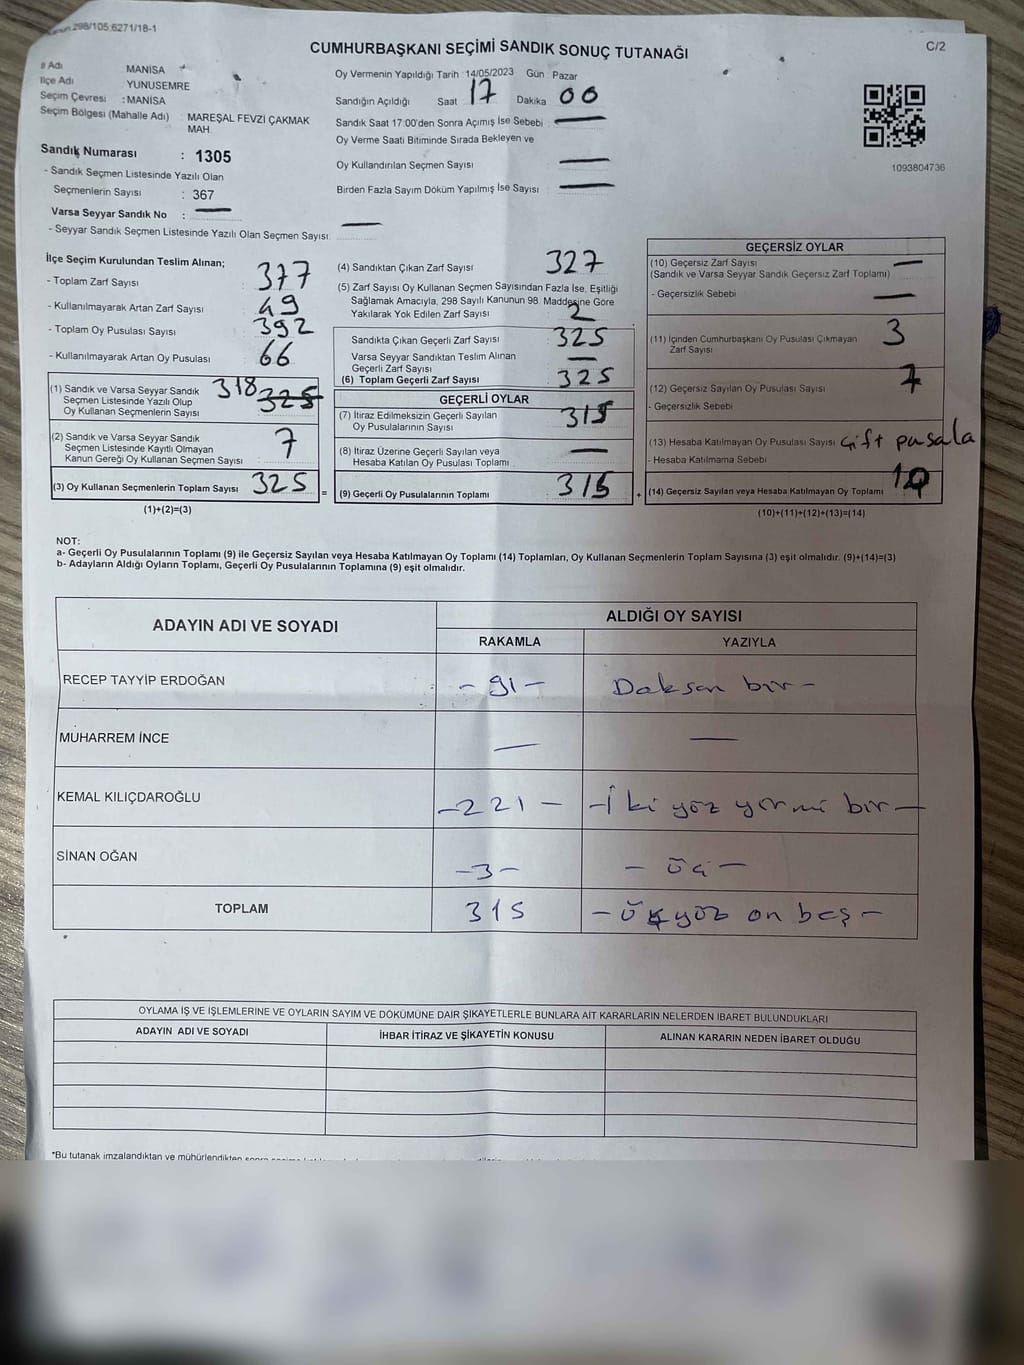 Kanun 298/105:6271/18-1
C/2
CUMHURBAŞKANI SEÇİMİ SANDIK SONUÇ TUTANAĞI
İl Adı MANİSA
İlçe Adı YUNUSEMRE
Seçim Çevresi : MANİSA
Seçim Bölgesi (Mahalle Adı) MAREŞAL FEVZİ ÇAKMAK
MAH.
Sandık Numarası : 1305
- Sandık Seçmen Listesinde Yazılı Olan
Seçmenlerin Sayısı : 367
Varsa Seyyar Sandık No : —
- Seyyar Sandık Seçmen Listesinde Yazılı Olan Seçmen Sayısı: —
Oy Vermenin Yapıldığı Tarih 14/05/2023 Gün Pazar
Sandığın Açıldığı Saat 17 Dakika 00
Sandık Saat 17:00'den Sonra Açımış İse Sebebi : —
Oy Verme Saati Bitiminde Sırada Bekleyen ve
Oy Kullandırılan Seçmen Sayısı —
Birden Fazla Sayım Döküm Yapılmış İse Sayısı : —
1093804736
İlçe Seçim Kurulundan Teslim Alınan;
- Toplam Zarf Sayısı : 377
- Kullanılmayarak Artan Zarf Sayısı : 49
- Toplam Oy Pusulası Sayısı : 392
- Kullanılmayarak Artan Oy Pusulası 66
(1) Sandık ve Varsa Seyyar Sandık 318 325
Seçmen Listesinde Yazılı Olup
Oy Kullanan Seçmenlerin Sayısı
(2) Sandık ve Varsa Seyyar Sandık
Seçmen Listesinde Kayıtlı Olmayan 7
Kanun Gereği Oy Kullanan Seçmen Sayısı
(3) Oy Kullanan Seçmenlerin Toplam Sayısı 325 =
(1)+(2)=(3)
(4) Sandıktan Çıkan Zarf Sayısı : 327
(5) Zarf Sayısı Oy Kullanan Seçmen Sayısından Fazla İse, Eşitliği
Sağlamak Amacıyla, 298 Sayılı Kanunun 98. Maddesine Göre
Yakılarak Yok Edilen Zarf Sayısı : 2
Sandıkta Çıkan Geçerli Zarf Sayısı : 325
Varsa Seyyar Sandıktan Teslim Alınan
Geçerli Zarf Sayısı —
(6) Toplam Geçerli Zarf Sayısı : 325
GEÇERLİ OYLAR
(7) İtiraz Edilmeksizin Geçerli Sayılan 315
Oy Pusulalarının Sayısı
(8) İtiraz Üzerine Geçerli Sayılan veya —
Hesaba Katılan Oy Pusulası Toplamı
(9) Geçerli Oy Pusulalarının Toplamı : 315 +
GEÇERSİZ OYLAR
(10) Geçersiz Zarf Sayısı —
(Sandık ve Varsa Seyyar Sandık Geçersiz Zarf Toplamı)
- Geçersizlik Sebebi : —
(11) İçinden Cumhurbaşkanı Oy Pusulası Çıkmayan 3
Zarf Sayısı
(12) Geçersiz Sayılan Oy Pusulası Sayısı : 7
- Geçersizlik Sebebi
(13) Hesaba Katılmayan Oy Pusulası Sayısı çift pusala
- Hesaba Katılmama Sebebi
(14) Geçersiz Sayılan veya Hesaba Katılmayan Oy Toplamı 10
(10)+(11)+(12)+(13)=(14)
NOT:
a- Geçerli Oy Pusulalarının Toplamı (9) ile Geçersiz Sayılan veya Hesaba Katılmayan Oy Toplamı (14) Toplamları, Oy Kullanan Seçmenlerin Toplam Sayısına (3) eşit olmalıdır. (9)+(14)=(3)
b- Adayların Aldığı Oyların Toplamı, Geçerli Oy Pusulalarının Toplamına (9) eşit olmalıdır.
ADAYIN ADI VE SOYADI ALDIĞI OY SAYISI
RAKAMLA YAZIYLA
RECEP TAYYİP ERDOĞAN - 91 - Doksan bir -
MUHARREM İNCE — —
KEMAL KILIÇDAROĞLU - 221 - - İki yüz yirmi bir -
SİNAN OĞAN - 3 - - üç -
TOPLAM 315 - üçyüz on beş -
OYLAMA İŞ VE İŞLEMLERİNE VE OYLARIN SAYIM VE DÖKÜMÜNE DAİR ŞİKAYETLERLE BUNLARA AİT KARARLARIN NELERDEN İBARET BULUNDUKLARI
ADAYIN ADI VE SOYADI İHBAR İTİRAZ VE ŞİKAYETİN KONUSU ALINAN KARARIN NEDEN İBARET OLDUĞU
*Bu tutanak imzalandıktan ve mühürlendikten sonra